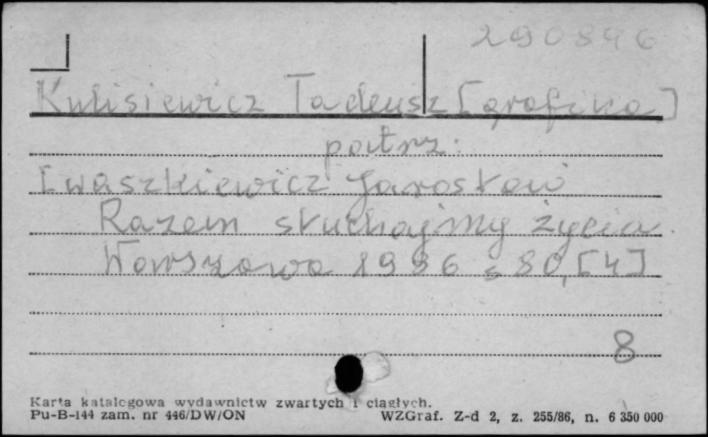 290896
Kulisiewicz Tadeusz [grafika]
patrz:
Iwaszkiewicz Jarosław
Razem słuchajmy życia
Warszawa 1986 s 80, [4]
8
Karta katalogowa wydawnictw zwartych i ciągłych.
Pu-B-144 zam. nr 446/DW/ON
WZGraf. Z-d 2, z. 255/86, n. 6 350 000